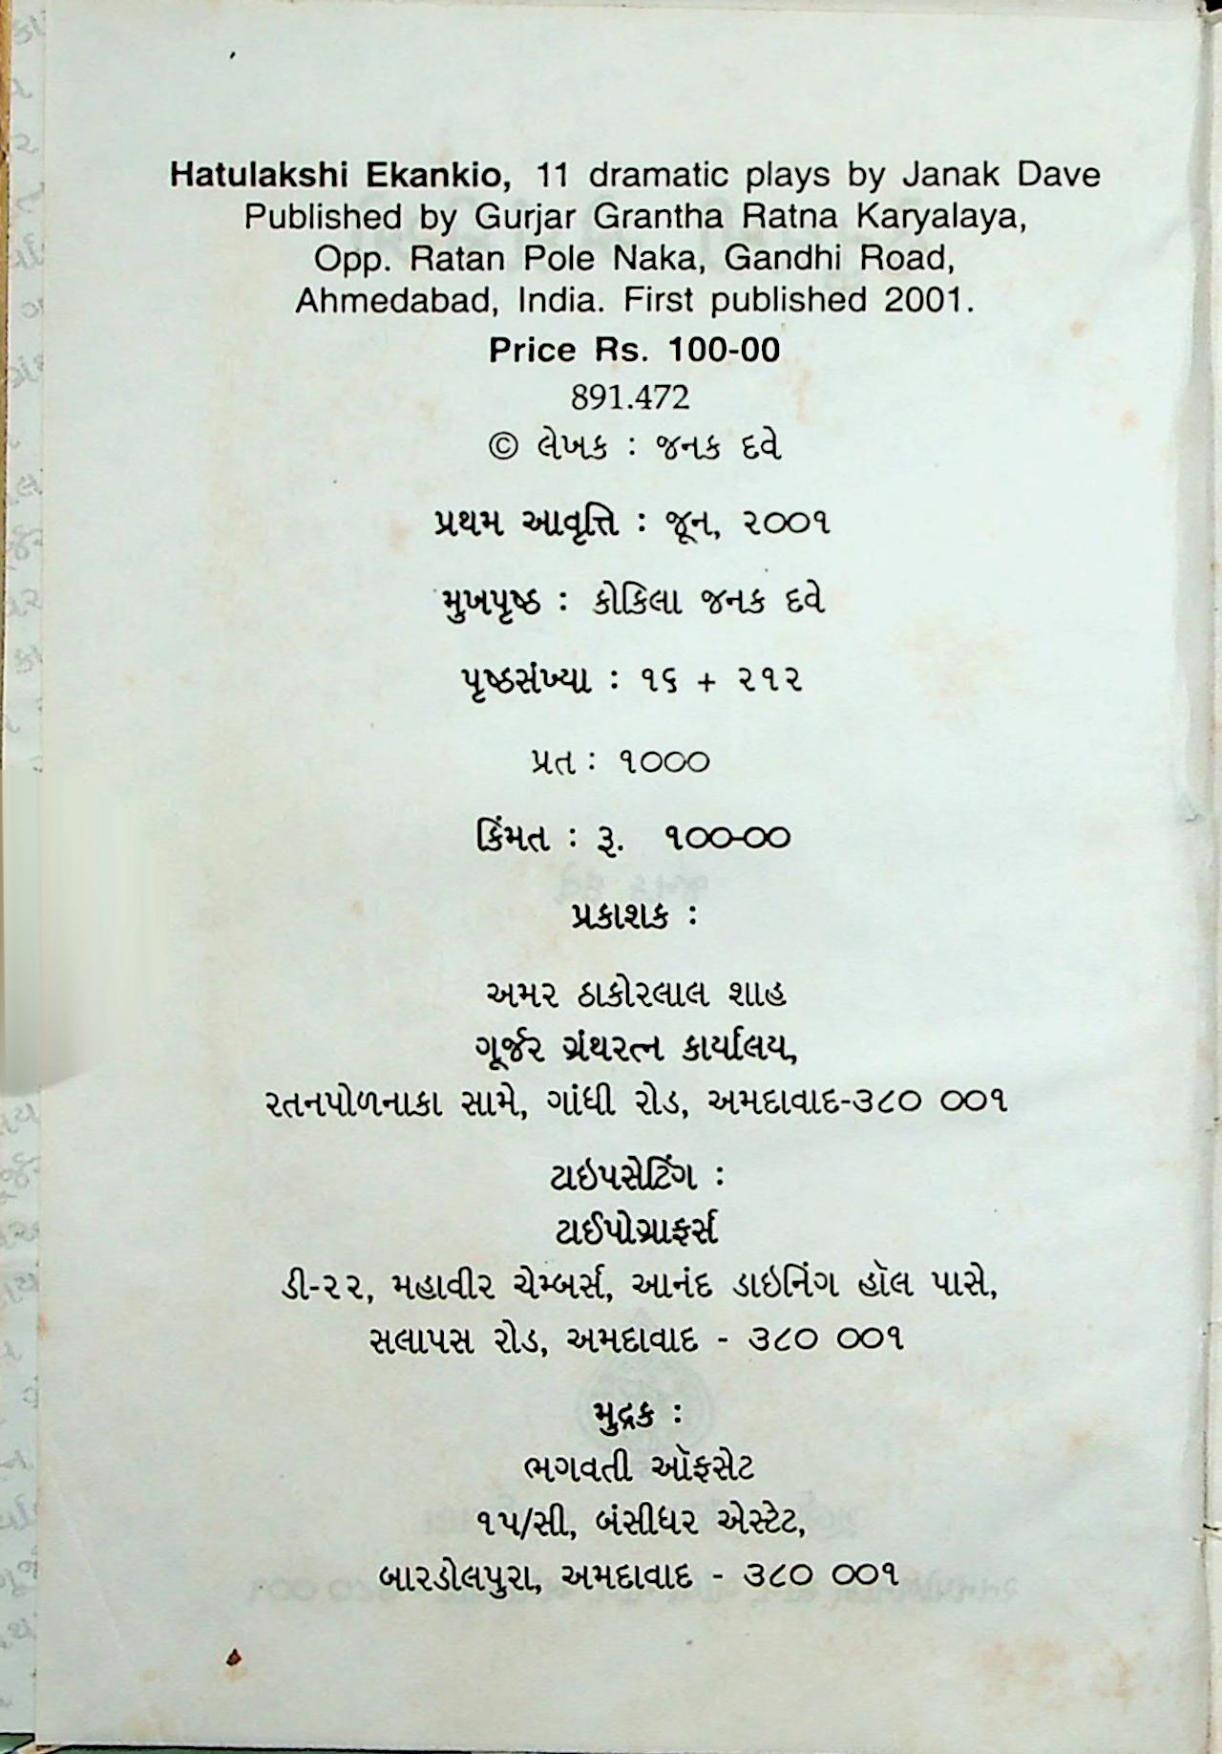 Hatulakshi Ekankio, 11 dramatic plays by Janak Dave
Published by Gurjar Grantha Ratna Karyalaya,
Opp. Ratan Pole Naka, Gandhi Road,
Ahmedabad, India. First published 2001.
Price Rs. 100-00
891.472
© લેખક : જનક દવે
પ્રથમ આવૃત્તિ : જૂન, ૨૦૦૧
મુખપૃષ્ઠ : કોકિલા જનક દવે
પૃષ્ઠસંખ્યા : ૧૬ + ૨૧૨
પ્રત : ૧૦૦૦
કિંમત : રૂ. ૧૦૦-૦૦
પ્રકાશક :
અમર ઠાકોરલાલ શાહ
ગૂર્જર ગ્રંથરત્ન કાર્યાલય,
રતનપોળનાકા સામે, ગાંધી રોડ, અમદાવાદ-૩૮૦ ૦૦૧
ટાઇપસેટિંગ :
ટાઈપોગ્રાફર્સ
ડી-૨૨, મહાવીર ચેમ્બર્સ, આનંદ ડાઇનિંગ હૉલ પાસે,
સલાપસ રોડ, અમદાવાદ - ૩૮૦ ૦૦૧
મુદ્રક :
ભગવતી ઑફસેટ
૧૫/સી, બંસીધર એસ્ટેટ,
બારડોલપુરા, અમદાવાદ - ૩૮૦ ૦૦૧